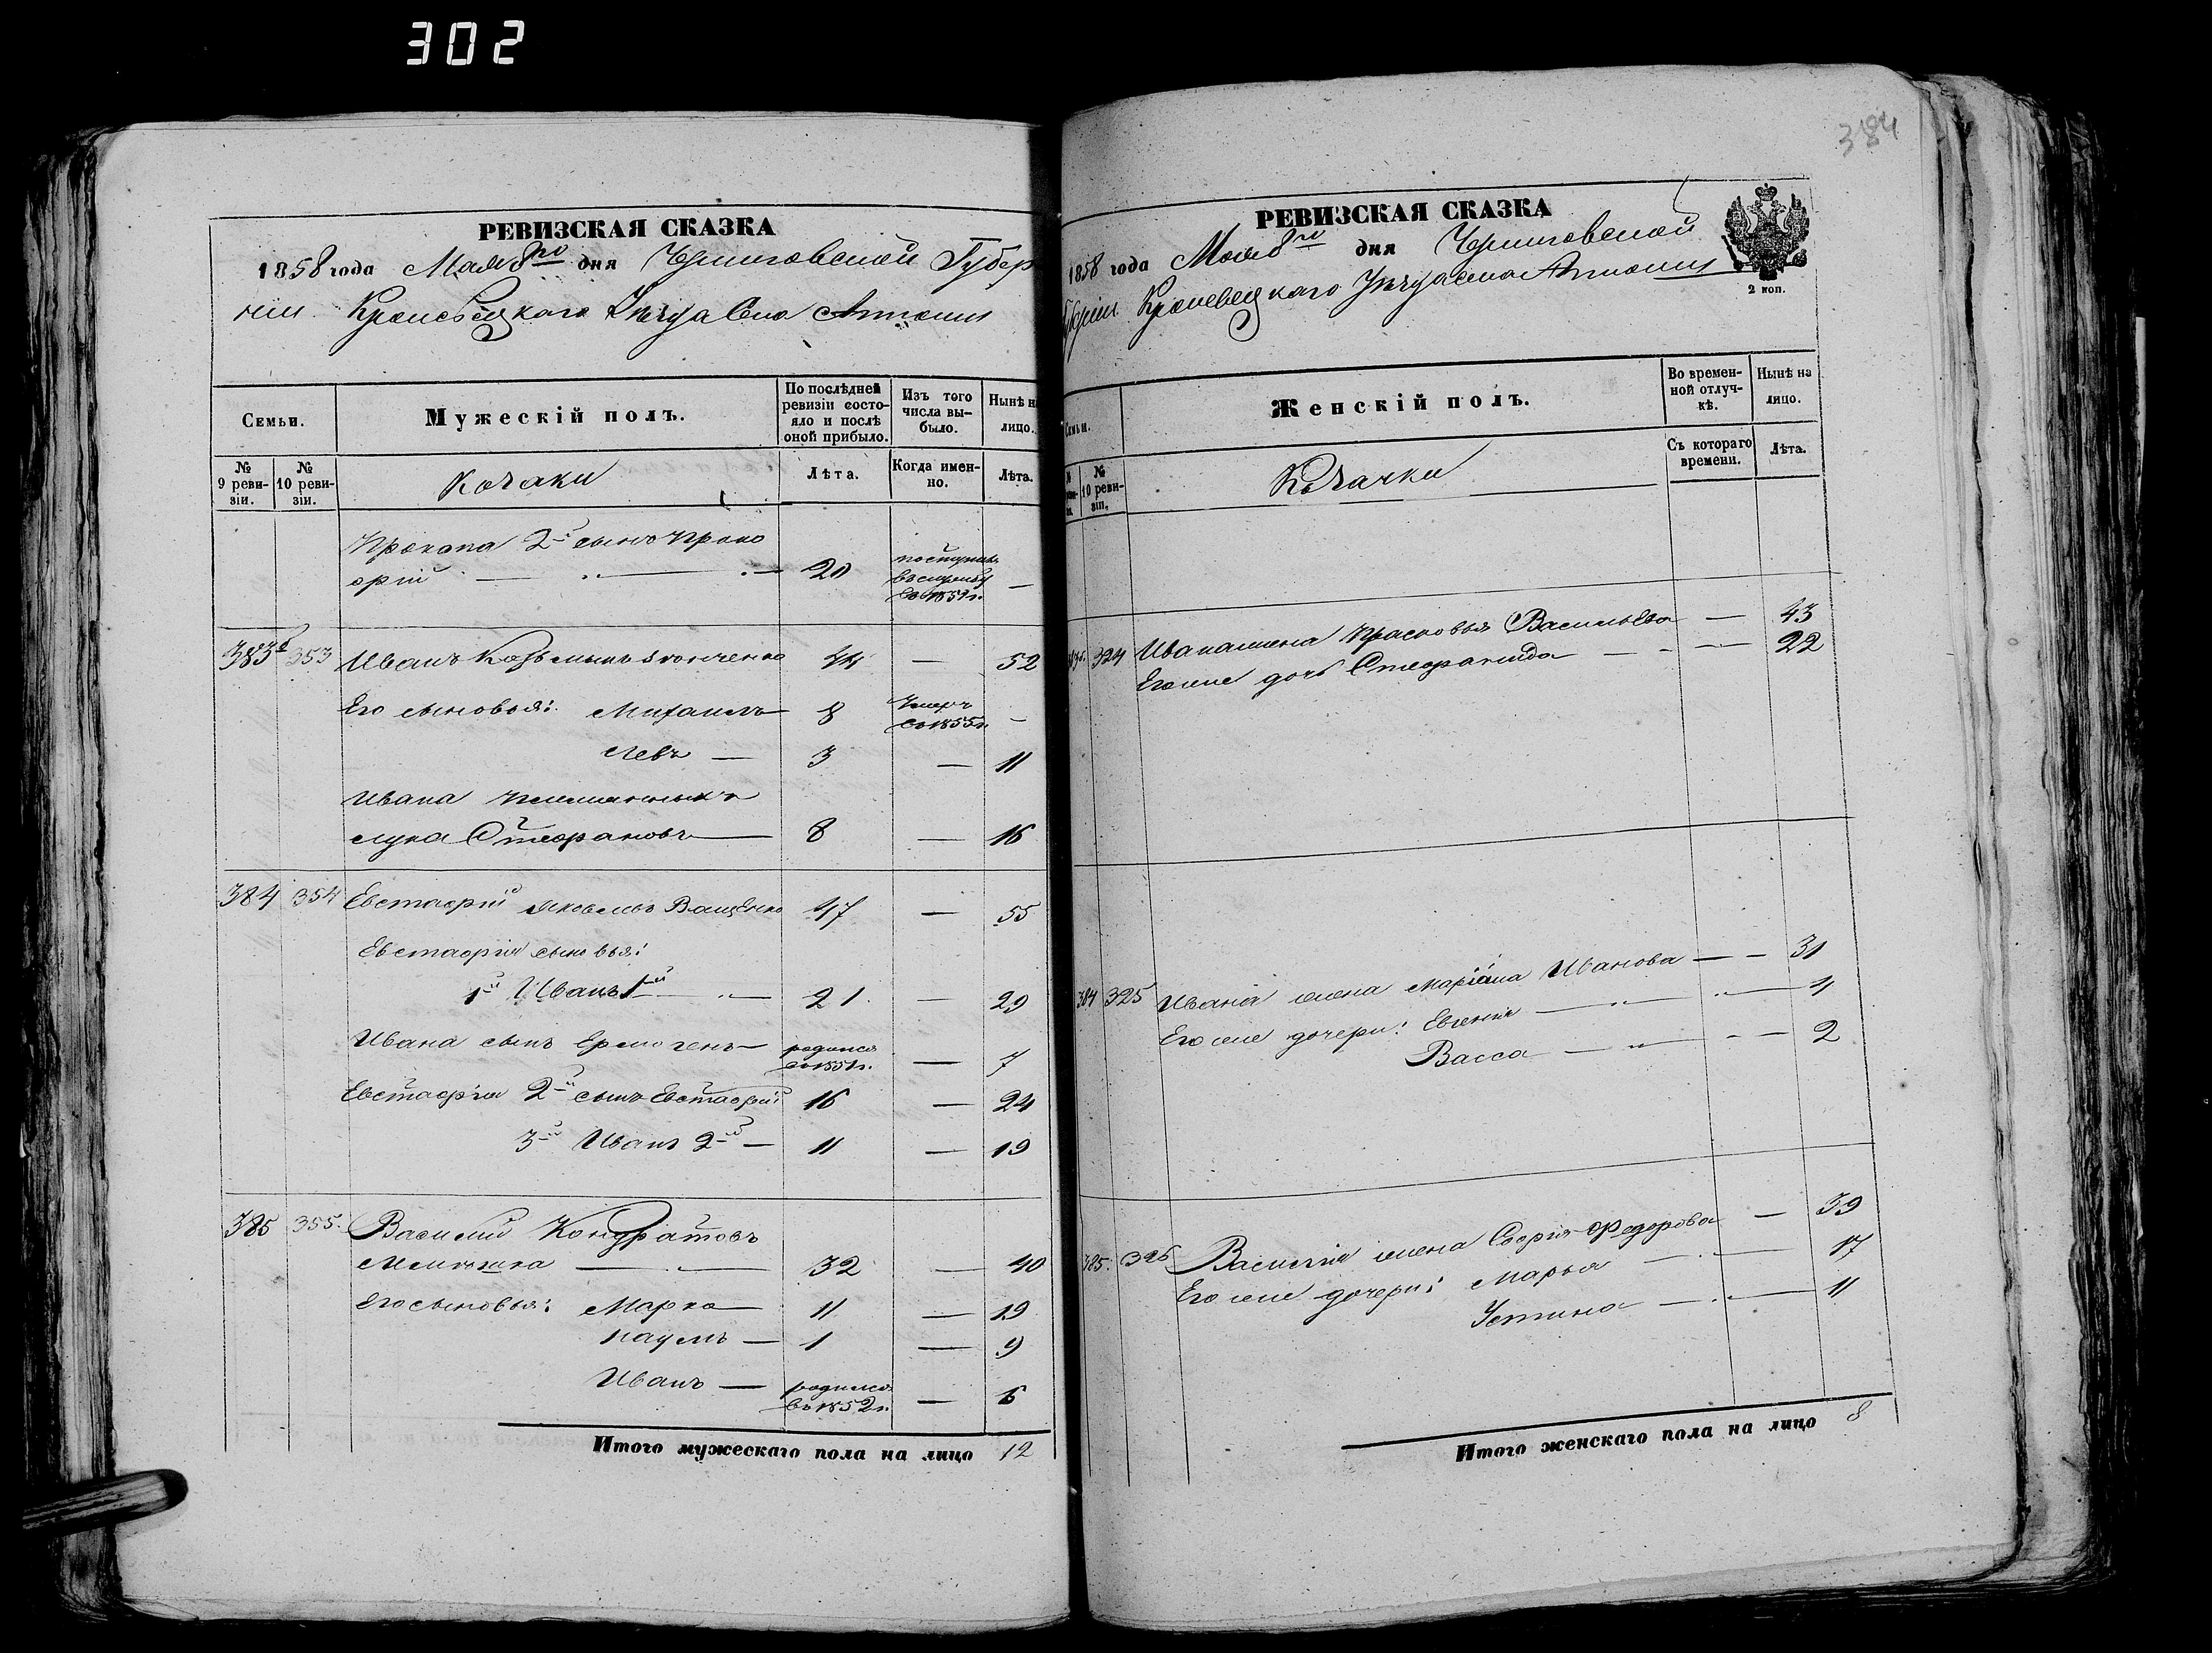 302
384
РЕВИЗСКАЯ СКАЗКА
1858 года Мая 8го дня Черниговской Губер
нии Кролевецкаго Уѣзда Села
Семьи. Мужескій полъ. По послѣдней ревизіи состояло и послѣ оной прибыло. Изъ того числа выбыло. Нынѣ на лицо.
№ 9 ревизіи. № 10 ревизіи. Козаки Лѣта. Когда именно. Лѣта.
Прокопа 2й сынъ Проко
фій — 20 поступилъ въ службу —
383 353 Иванъ Козьминъ 44 — 52
Его сыновья: Михаилъ 8 Умеръ въ 1855г. —
Левъ — 3 — 11
Ивана племянникъ
Лука Стефановъ — 8 — 16
384 354 Евстафій Яковлевъ Ващенко 47 — 55
Евстафія сыновья:
1й Иванъ 1й — 21 — 29
Ивана сынъ Ермогенъ — родился въ 1851г. — 7
Евстафія 2й сынъ Евстафій 16 — 24
3й Иванъ 2й — 11 — 19
385 355. Василий Кондратовъ
— 32 — 40
Его сыновья: Марко — 11 — 19
Наумъ — 1 — 9
Иванъ — родился въ 1852г. — 6
Итого мужескаго пола на лицо 12
РЕВИЗСКАЯ СКАЗКА
1858 года Мая 8го дня Черниговской
Губернии Кролевецкаго Уѣзда Села
2 коп.
Семьи. Женскій полъ. Во временной отлучкѣ. Нынѣ на лицо.
№ 10 ревизіи. Козачки Съ котораго времени. Лѣта.
324 Ивана жена Прасковья Васильева — 43
Его же дочь Стефанида — 22
384 325 Ивана жена Маріана Иванова — 31
Его же дочери: Евгенія — 4
Васса — 2
385. 326 Василія жена Софія Федорова — 39
Его же дочери: Марья — 17
Устина — 11
Итого женскаго пола на лицо 8